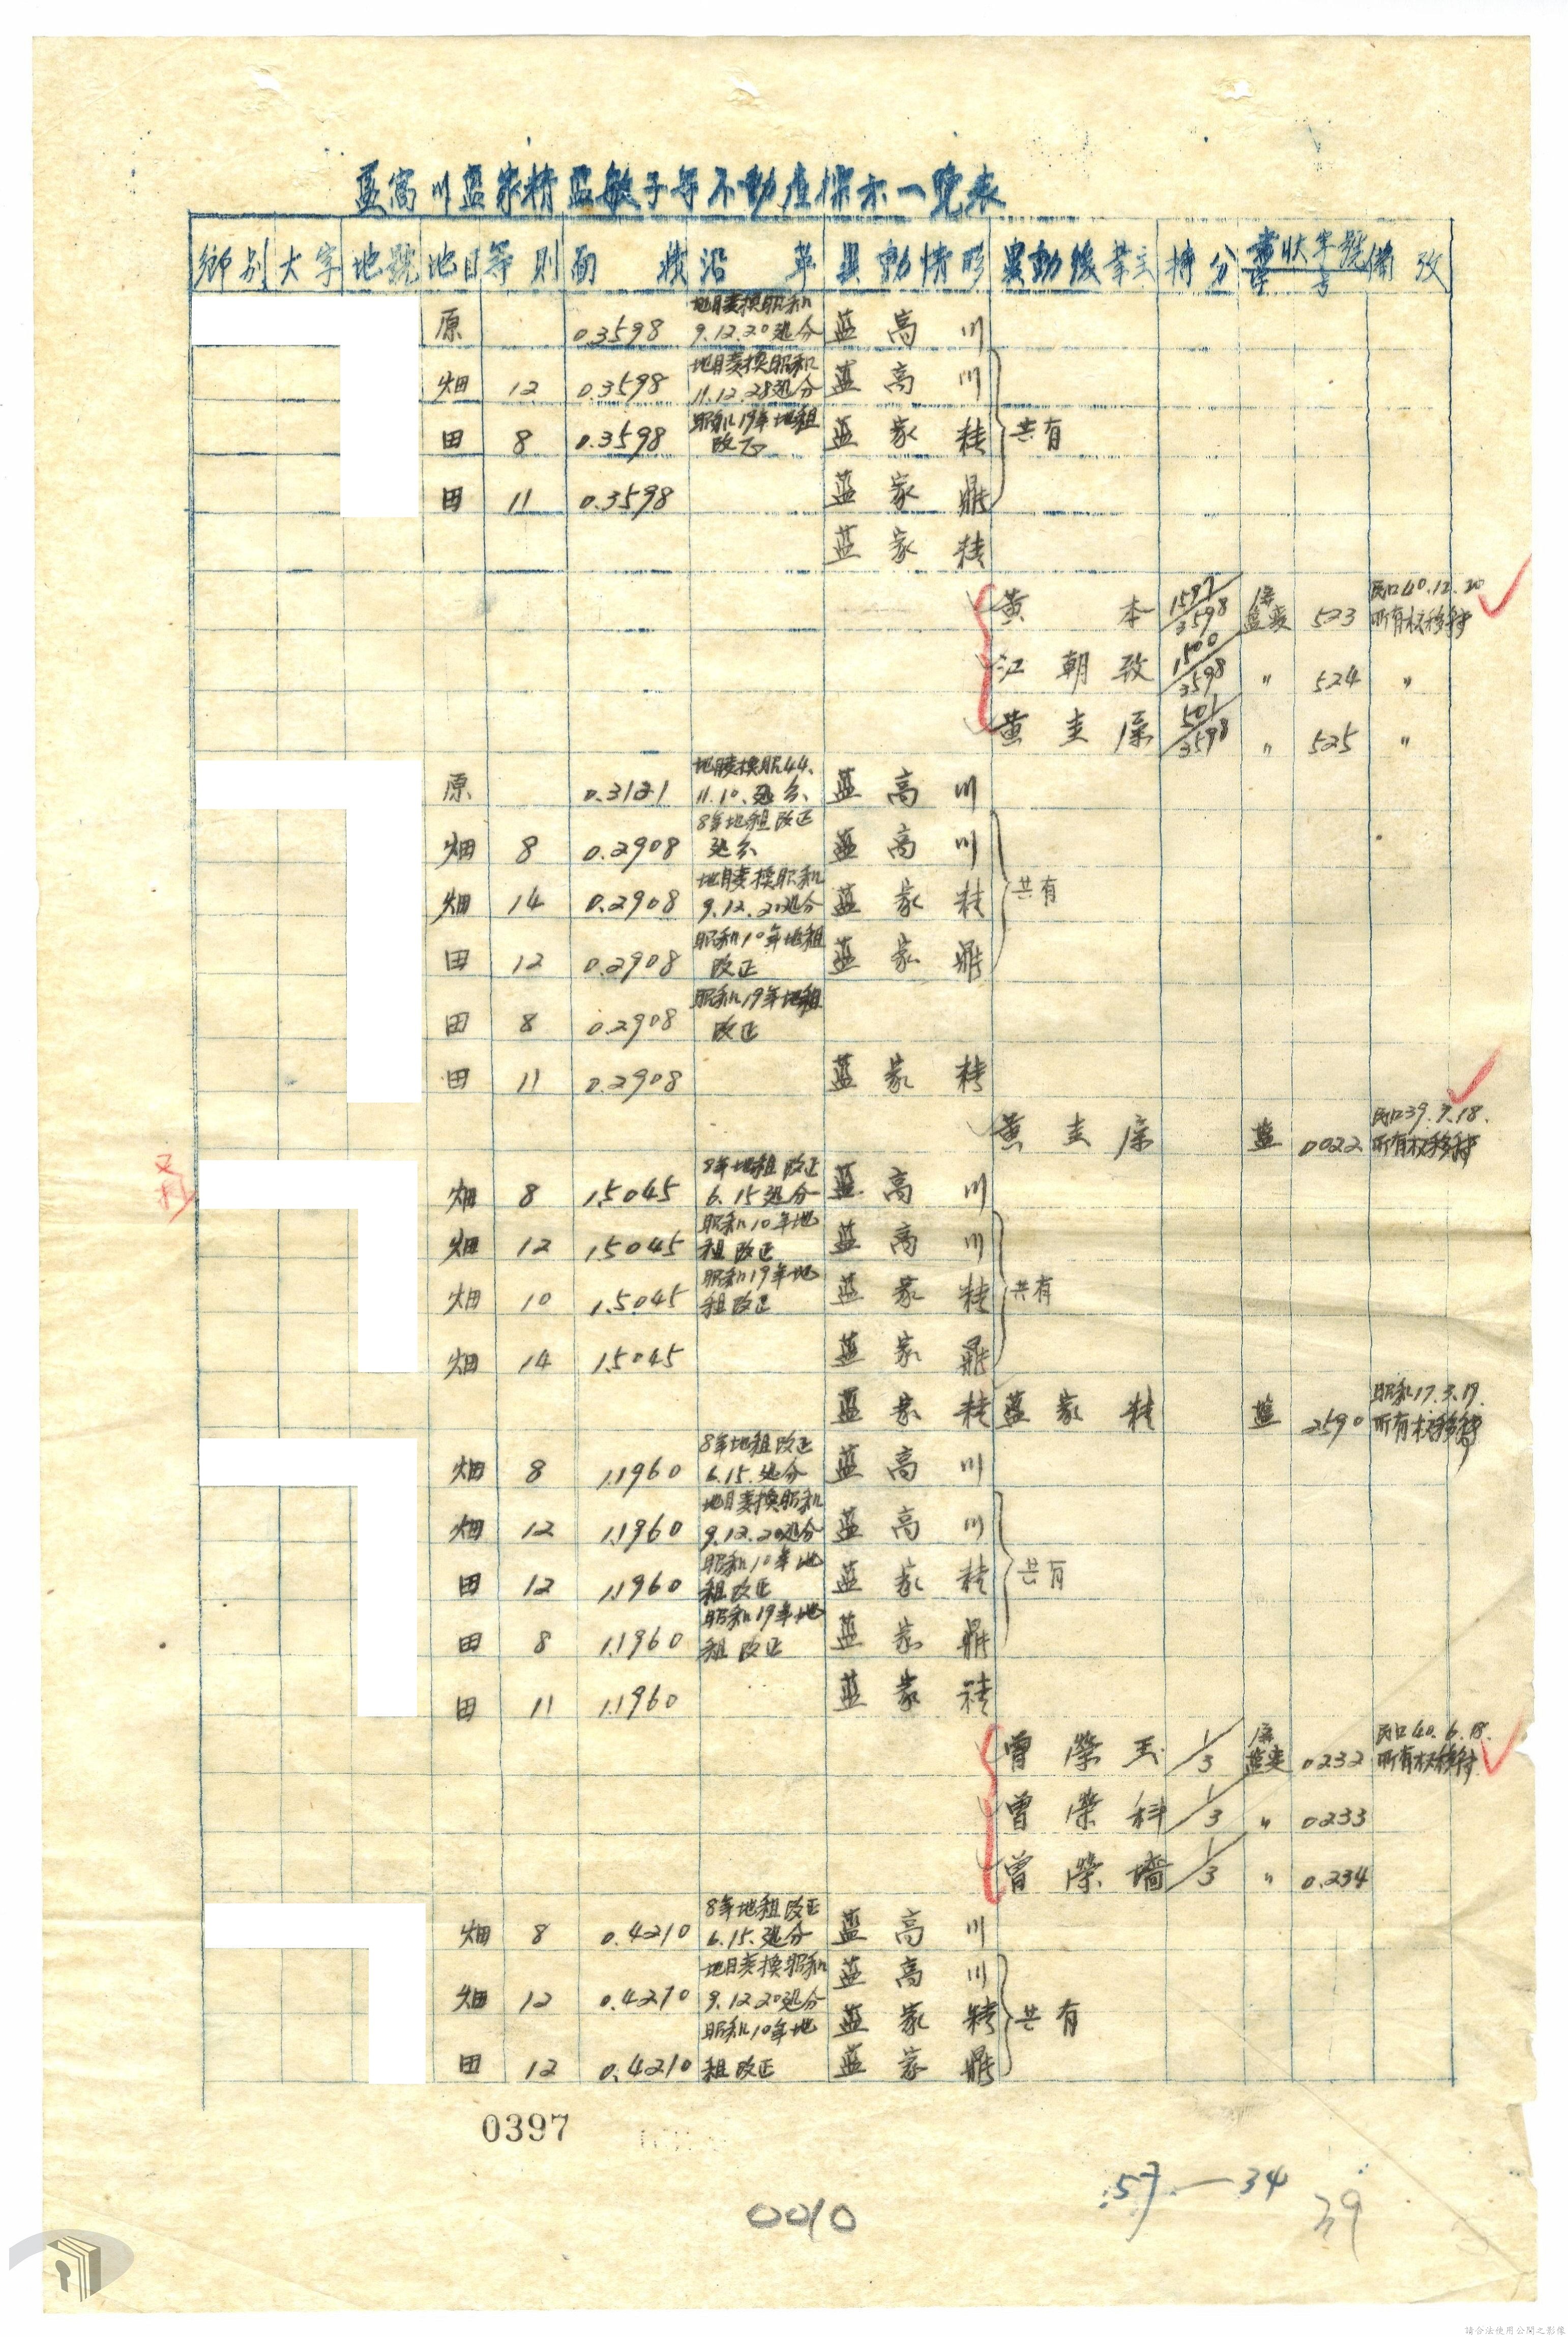 藍高川藍家精藍敏子等不動產標示一覽表
鄉別 大字 地號 地目 等則 面積 沿革 異動情形 異動後業主 持分 書狀字號 備攷
原 0.3598 地目変換昭和9.12.20処分 藍高川
畑 12 0.3598 地目変換昭和11.12.28処分 藍高川
田 8 0.3598 昭和19年地租改正 藍家精 共有
田 11 0.3598 藍家鼎
藍家精
黃本 1597/3598 屏藍変 523 民口40.12.20所有权移轉
江朝致 1500/3598 〃 524 〃
黃圭屘 501/3598 〃 525 〃
原 0.3121 44.11.10.処分 藍高川
畑 8 0.2908 8年地租改正処分 藍高川
畑 14 0.2908 地目変換昭和9.12.20処分 藍家精 共有
田 12 0.2908 昭和10年地租改正 藍家鼎
田 8 0.2908 昭和19年地租改正
田 11 0.2908 藍家精
黃圭屘 藍 0022 民口39.7.18.所有权移轉
畑 8 1.5045 8年地租改正6.15処分 藍高川
畑 12 1.5045 昭和10年地租改正 藍高川
畑 10 1.5045 昭和19年地租改正 藍家精 共有
畑 14 1.5045 藍家鼎
藍家精 藍家精 藍 2590 昭和17.3.19.所有权移轉
畑 8 1.1960 8年地租改正6.15.処分 藍高川
畑 12 1.1960 地目変換昭和9.12.20処分 藍高川
田 12 1.1960 昭和10年地租改正 藍家精 共有
田 8 1.1960 昭和19年地租改正 藍家鼎
田 11 1.1960 藍家精
曾榮玉 1/3 屏藍変 0232 民口40.6.18.所有权移轉
曾榮科 1/3 〃 0233
曾榮墻 1/3 〃 0.234
畑 8 0.4210 8年地租改正6.15.処分 藍高川
畑 12 0.4210 地目変換昭和9.12.20処分 藍高川 藍家精 共有
田 12 0.4210 昭和10年地租改正 藍家鼎
0397
57—34
39
0010
請合法使用公開之影像